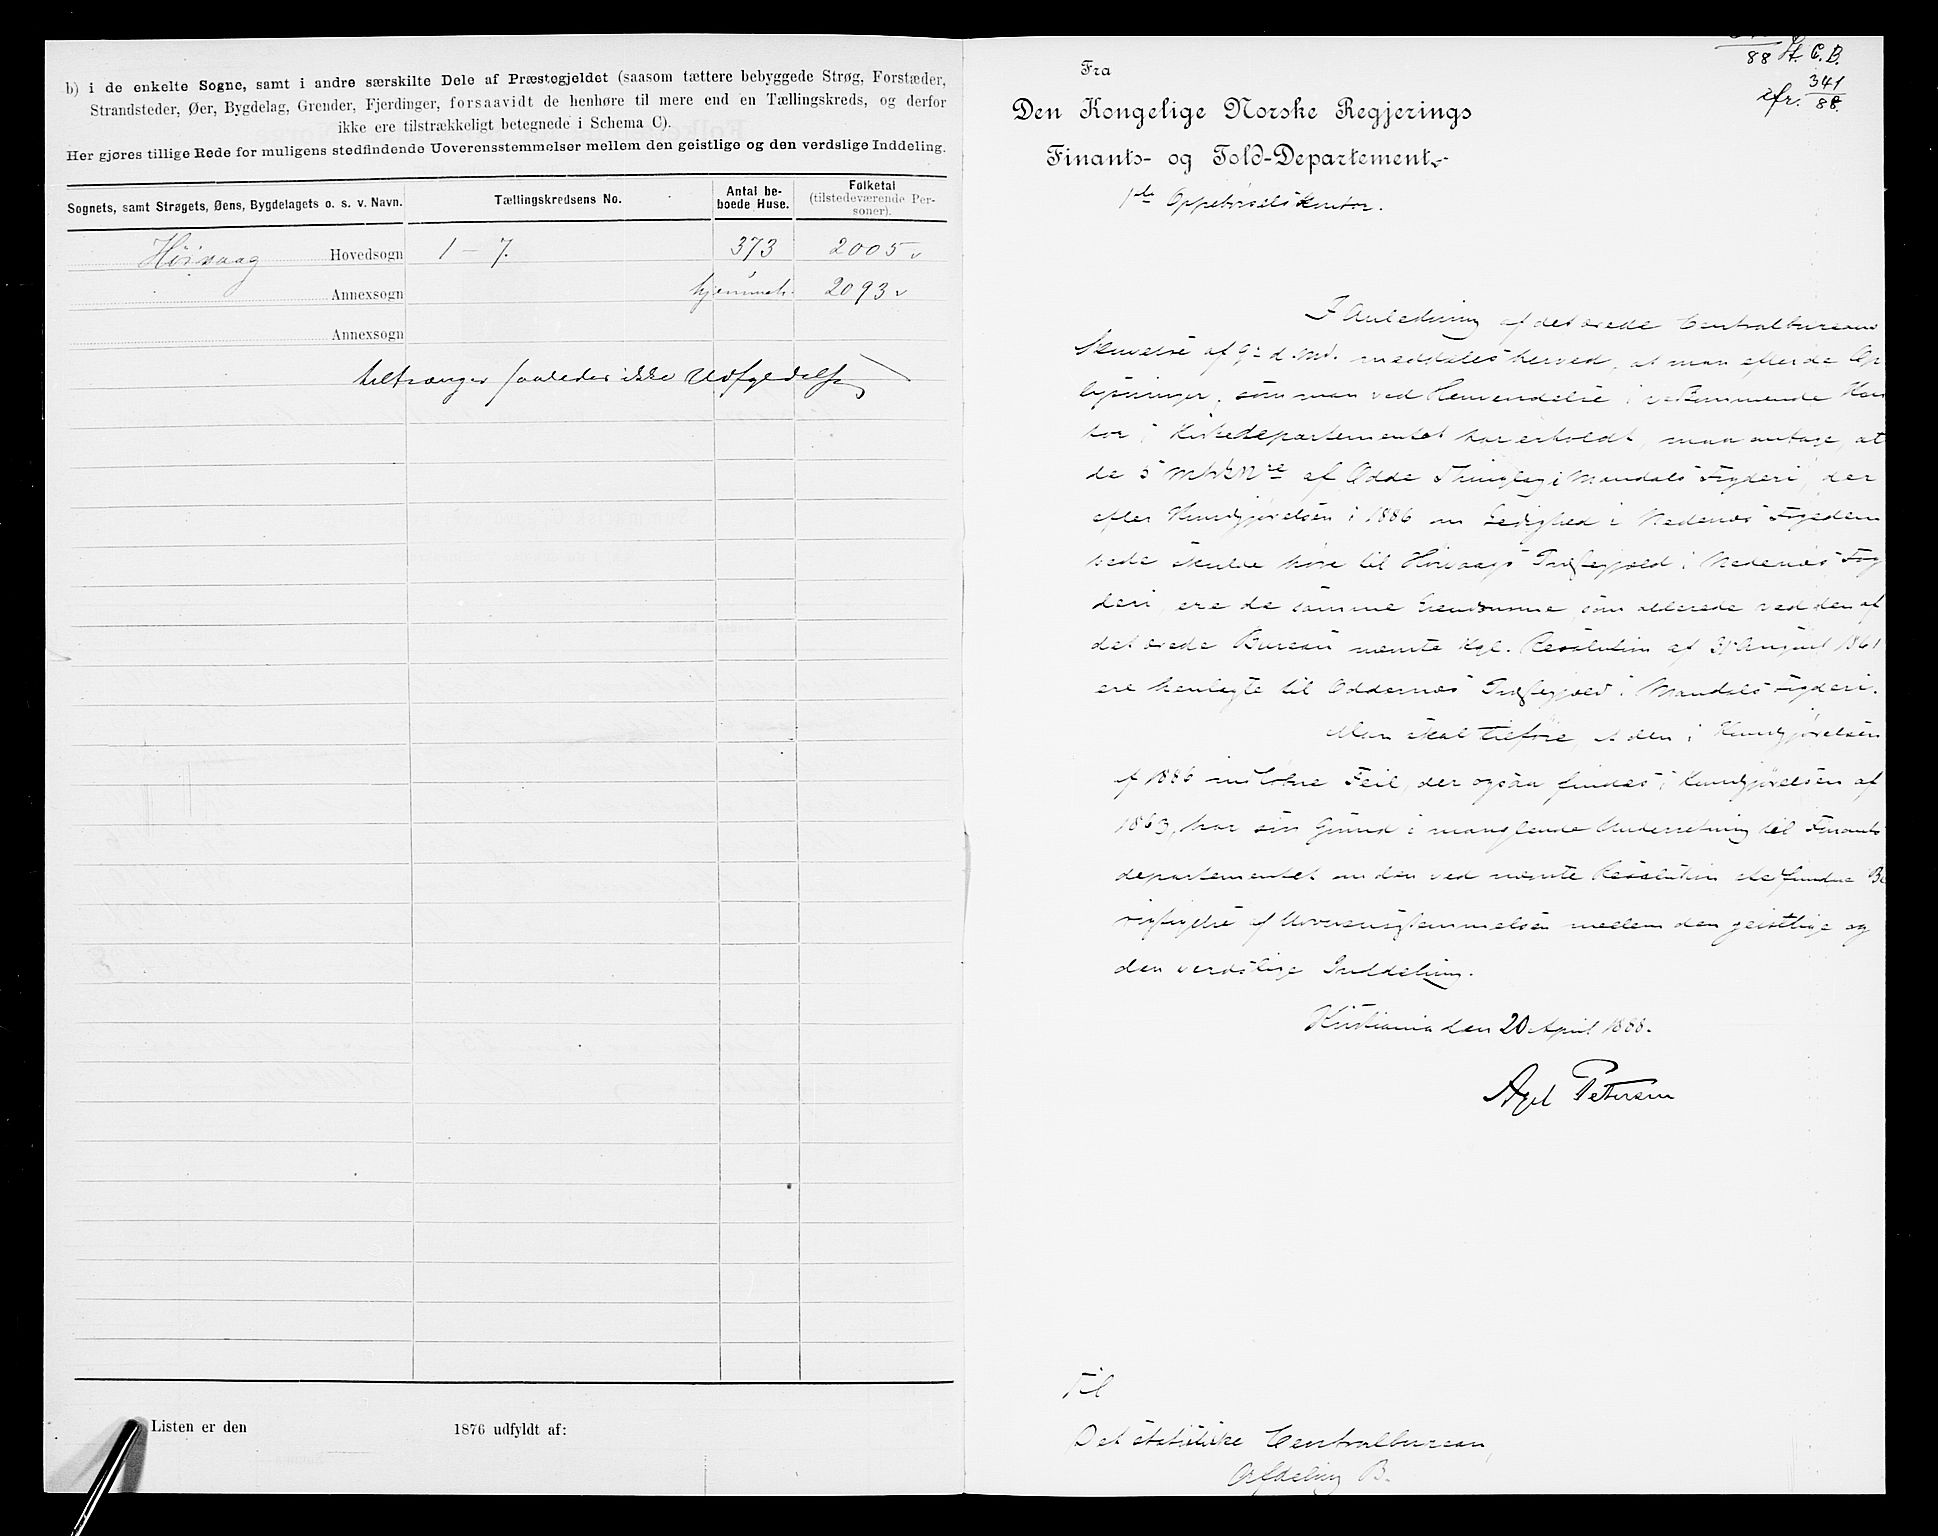 b) i de enkelte Sogne, samt i andre særskilte Dele af Præstegjeldet (saasom tættere bebyggede Strøg, Forstæder,
Strandsteder, Øer, Bygdelag, Grender, Fjerdinger, forsaavidt de henhøre til mere end en Tællingskreds, og derfor
ikke ere tilstrækkeligt betegnede i Schema C).
Her gjøres tillige Rede for muligens stedfindende Uoverensstemmelser mellem den geistlige og den verdslige Inddeling.
Sognets, samt Strøgets, Øens, Bygdelagets o. s. v. Navn.
Tællingskredsens No.
Antal be-
boede Huse.
Folketal
(tilstedeværende Per-
soner).
Höivaag Hovedsogn 1 - 7. 373 2005
Annexsogn hjemmeh. 2093
Annexsogn
tiltrænger saaledes ikke Udfyldelse
Listen er den 1876 udfyldt af:
88 St. C. B.
cfr. 341
88.
Fra
Den Kongelige Norske Regjerings
Finants- og Told-Departement
1ste Oppebörselskontor.
I Anledning af det ærede Centralbureaus
Skrivelse af 9de d. Md. meddeles herved, at man efter de Op
lysninger, som man ved Henvendelse i vedkommende Kon
tor i Kirkedepartementet har erholdt, maa antage, at
de 5 Mtr.Nre af Odde Thinglag i Mandals Fogderi, der
efter Kundgjørelsen i 1886 i Nedenæs Fogderi
skulde høre til Höivaags Præstegjæld i Nedenæs Fog
deri, ere de samme Eiendomme, som allerede ved den af
det ærede Bureau nævnte Kgl. Resolution af 31 August 1861
ere henlagte til Oddernæs Præstegjæld i Mandals Fogderi.
Man skal tilføie, at den i Kundgjørelsen
af 1886 indløbne Feil, der ogsaa findes i Kundgjørelsen af
1863, har sin Grund i manglende Underretning til Finants
departementet om den ved nævnte Resolution stedfundne Be
af Uoverensstemmelsen mellem den geistlige og
den verdslige Inddeling.
Kristiania den 20 April 1888.
Axel Petersen
Til
Det statistiske Centralbureau,
Afdeling B.